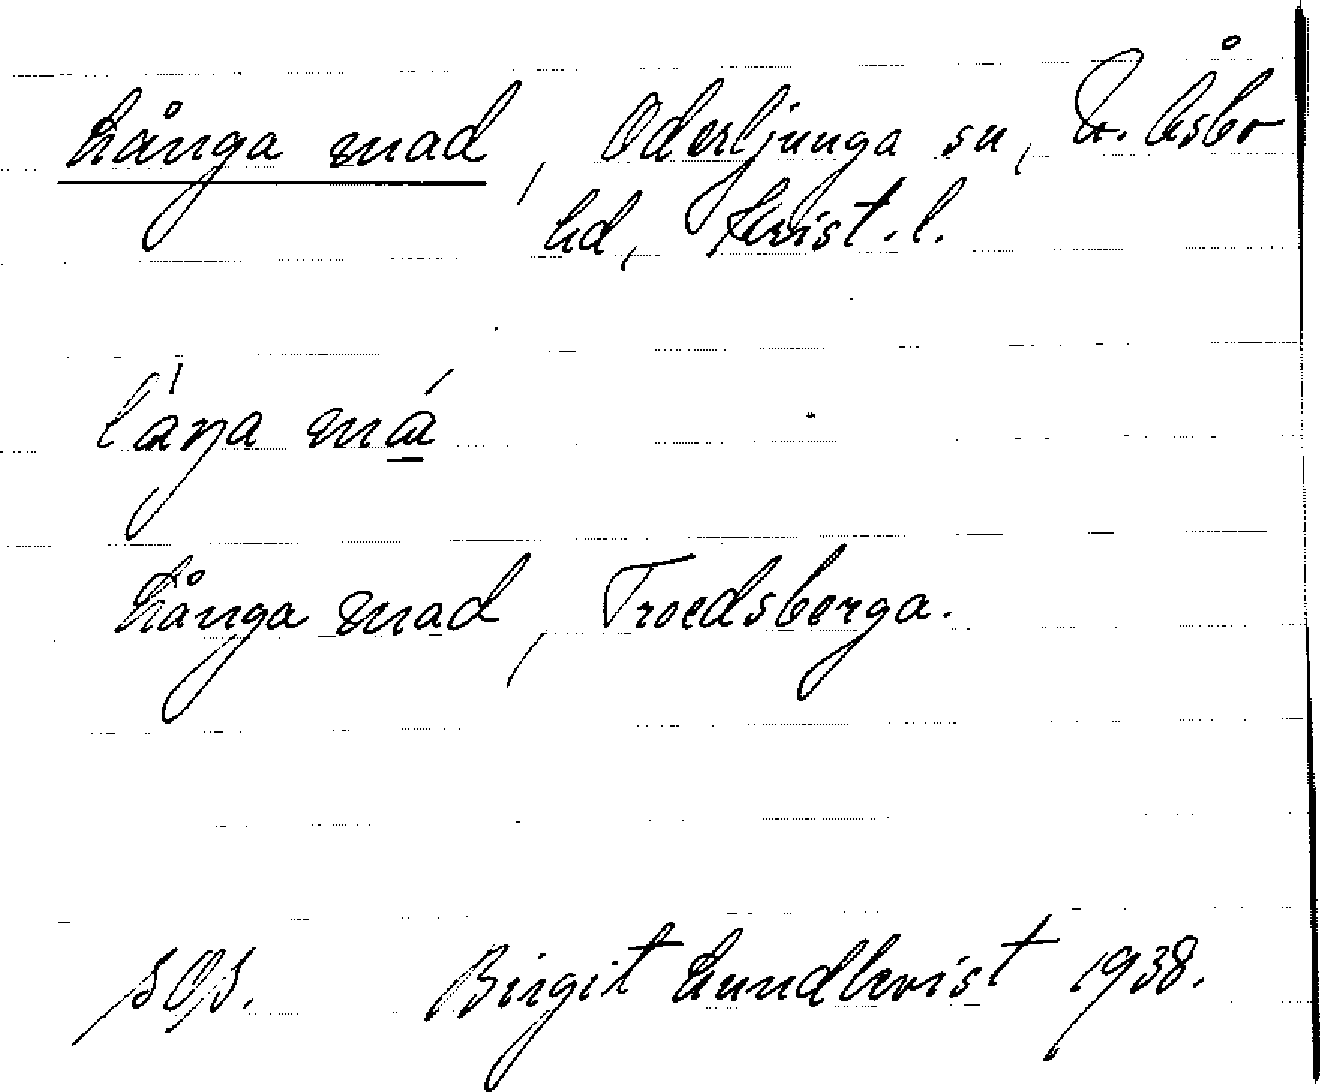 Långa mad, Oderljunga sn, N. Åsbo
hd, Krist. l.
láŋa má
Långa mad, Troedsberga.
Birgit Lundkvist 1938.